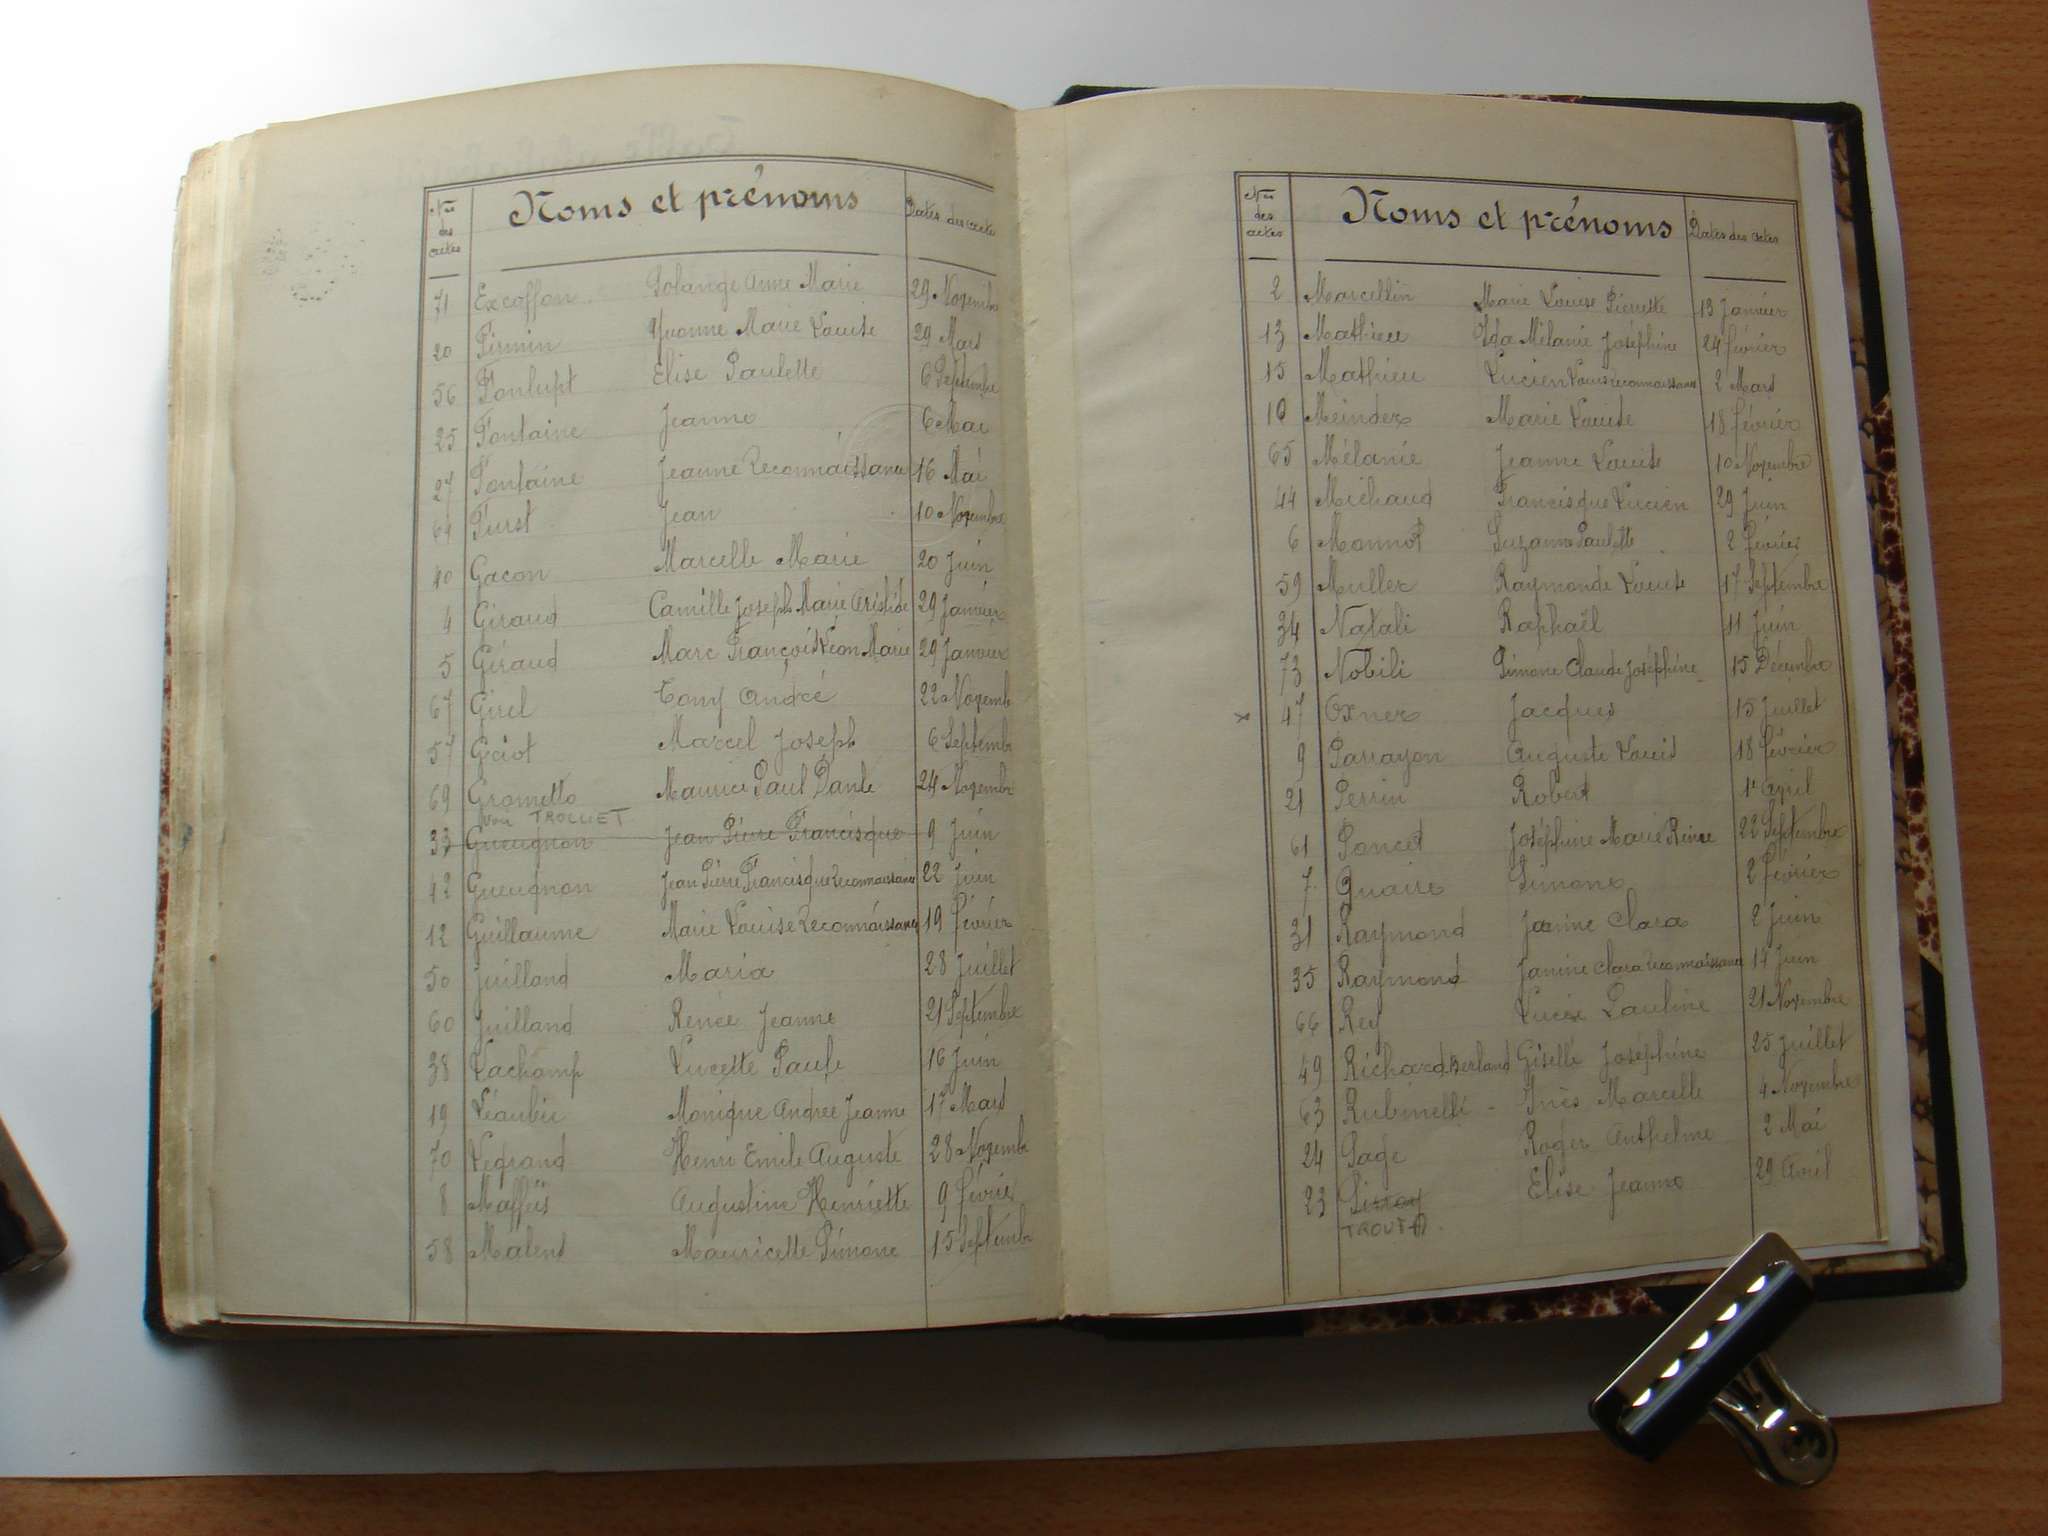 Nos des actes
Noms et prénoms
Dates des actes
71 Excoffon Solange Anne Marie 29 Novembre
20 Firmin Yvonne Marie Louise 29 Mars
56 Fonlupt Elise Paulette 6 Septembre
25 Fontaine Jeanne 6 Mai
27 Fontaine Jeanne Reconnaissance 16 Mai
64 Furst Jean 10 Novembre
40 Gacon Marcelle Marie 20 Juin
4 Giraud Camille Joseph Marie Aristide 29 Janvier
5 Giraud Marc François Léon Marie 29 Janvier
67 Girel Tony André 22 Novemb
57 Griot Marcel Joseph 6 Septemb
69 Maurice Paul Dante 24 Novembr
voir TROLLIET
33 Gueugnon Jean Pierre Francisque 9 Juin
42 Gueugnon Jean Pierre Francisque Reconnaissance 22 Juin
12 Guillaume Marie Louise Reconnaissance 19 Février
50 Juilland Maria 28 Juillet
60 Juilland Renée Jeanne 21 Septembre
38 Lachamp Lucette Paule 16 Juin
19 Monique Andrée Jeanne 17 Mars
70 Legrand Henri Emile Auguste 28 Novembr
8 Maffeïs Augustine Henriette 9 Février
58 Malend Mauricette Simone 15 Septembr
Nos des actes
Noms et prénoms
Dates des actes
2 Marcellin Marie Louise Pierrette 13 Janvier
13 Mathieu Ida Mélanie Joséphine 24 Février
15 Mathieu Lucien Louis Reconnaissance 2 Mars
10 Meinder Marie Louise 18 Février
65 Mélanie Jeanne Louise 10 Novembre
44 Michaud Francisque Lucien 29 Juin
6 Monnot Suzanne Paulette 2 Février
59 Muller Raymonde Louise 17 Septembre
34 Natali Raphaël 11 Juin
73 Nobili Simone Claude Joséphine 15 Décembre
x 47 Oxner Jacques 15 Juillet
9 Parrayon Auguste Louis 18 Février
21 Perrin Robert 1er Avril
61 Poncet Joséphine Marie Reine 22 Septembre
7 Quaire Simone 2 Février
31 Raymond Janine Clara 2 Juin
35 Raymond Janine Clara Reconnaissance 14 Juin
66 Rey Lucie Pauline 21 Novembre
49 Richard Berland Gisèle Joséphine 25 Juillet
63 Rubinelli Inès Marcelle 4 Novembre
24 Sage Roger Anthelme 2 Mai
23 Elise Jeanne 29 Avril